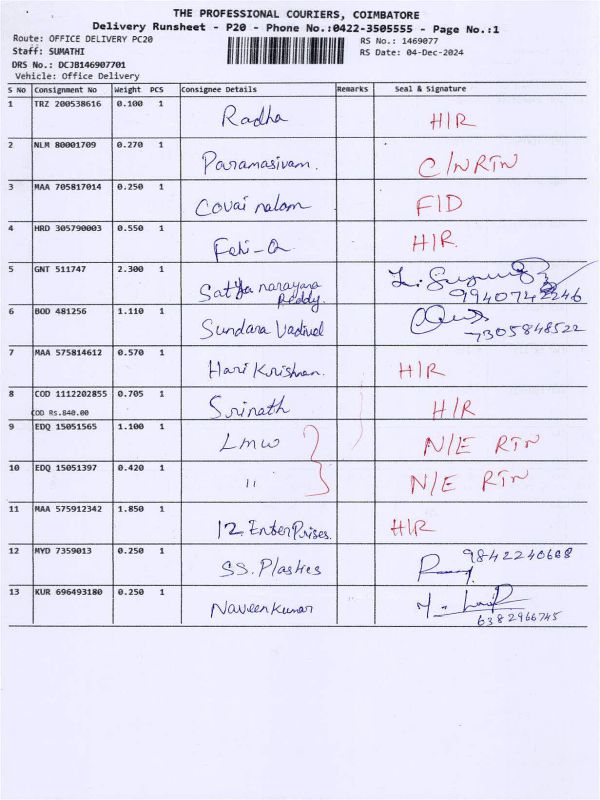 THE PROFESSIONAL COURIERS, COIMBATORE
Delivery Runsheet - P20 - Phone No.:0422-3505555 - Page No.:1
Route: OFFICE DELIVERY PC20 RS No.: 1469077
Staff: SUMATHI RS Date: 04-Dec-2024
DRS No.: DCJB146907701
Vehicle: Office Delivery
S No Consignment No Weight PCS Consignee Details Remarks Seal & Signature
1 TRZ 200538616 0.100 1 Radha H/R
2 NLM 80001709 0.270 1 Paramasivam. C/N RTN
3 MAA 705817014 0.250 1 Covai nalam F/D
4 HRD 305790003 0.550 1 H/R.
5 GNT 511747 2.300 1 Satya narayana
Reddy. 9940742246
6 BOD 481256 1.110 1 Sundara Vadivel 7305848522
7 MAA 575814612 0.570 1 Hari Krishnan. H/R
8 COD 1112202855 0.705 1 Srinath H/R
COD Rs.840.00
9 EDQ 15051565 1.100 1 LMW N/E RTN
10 EDQ 15051397 0.420 1 " N/E RTN
11 MAA 575912342 1.850 1 12 EnterPrises. H/R
12 MYD 7359013 0.250 1 SS. Plastics 9842240608
13 KUR 696493180 0.250 1 Naveen Kumar 6382966745